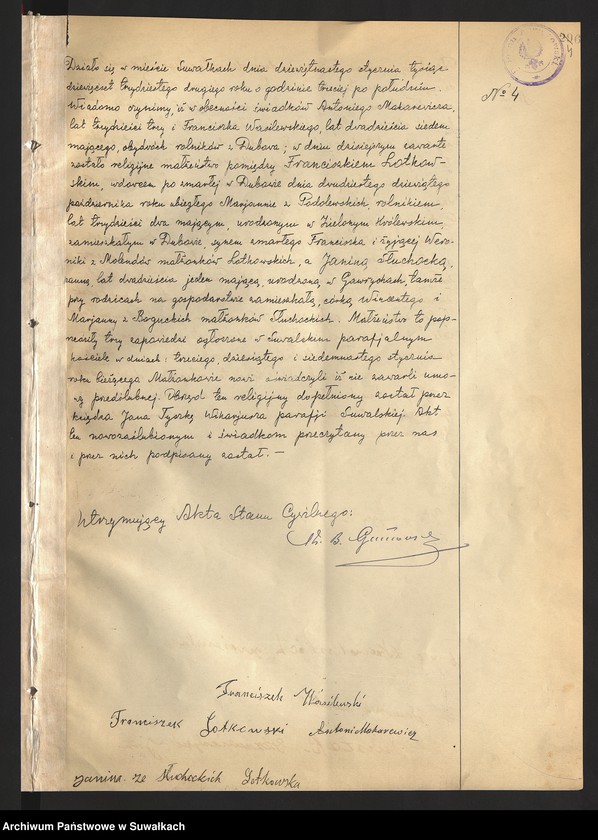 № 4
Działo się w mieście Suwałkach dnia dziewiętnastego stycznia tysiąc
dziewięćset trzydziestego drugiego roku o godzinie trzeciej po południu.
Wiadomo czynimy, iż w obecności świadków Antoniego Makarewicza,
lat trzydzieści trzy i Franciszka Wasilewskiego, lat dwadzieścia siedem
mającego, obydwóch rolników z Dubowa; w dniu dzisiejszym zawarte
zostało religijne małżeństwo pomiędzy Franciszkiem Lotkow-
skim, wdowcem po zmarłej w Dubowie dnia dwudziestego dziewiątego
października roku ubiegłego Marjannie z Podolewskich, rolnikiem,
lat trzydzieści dwa mającym, urodzonym w Zielonym Królewskim,
zamieszkałym w Dubowie, synem zmarłego Franciszka i żyjącej Wero-
niki z Molendów małżonków Lotkowskich, a Janiną Słuchocką,
panną, lat dwadzieścia jeden mającą, urodzoną w Gawrychach, tamże
przy rodzicach na gospodarstwie zamieszkałą, córką Wincentego i
Marjanny z Boguckich małżonków Słuchockich. Małżeństwo to pop-
rzedziły trzy zapowiedzi ogłoszone w Suwalskim parafjalnym
kościele w dniach: trzeciego, dziesiątego i siedemnastego stycznia
roku bieżącego Małżonkowie nowi świadczyli iż nie zawarli umo-
wy przedślubnej. Obrzęd ten religijny dopełniony został przez
księdza Jana Tyszkę Wikarjusza parafji Suwalskiej. Akt
ten nowozaślubionym i świadkom przeczytany przez nas
i przez nich podpisany został. —
Utrzymujący Akta Stanu Cywilnego:
Ks. B.
Franciszek Wasilewski
Franciszek Lotkowski Antoni Makarewicz
Janina ze Słuchockich Lotkowska
Archiwum Państwowe w Suwałkach